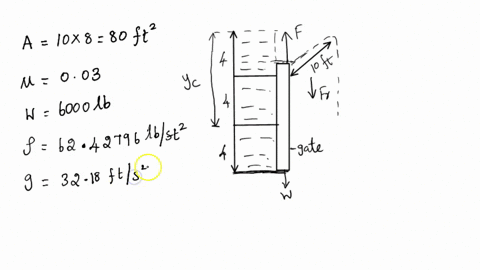 A = 10×8 = 80 ft²
μ = 0.03
W = 6000 lb
ρ = 62.42796 lb/st²
g = 32.18 ft/s²
F
4
10 ft
yc
4
Fr
4
gate
W